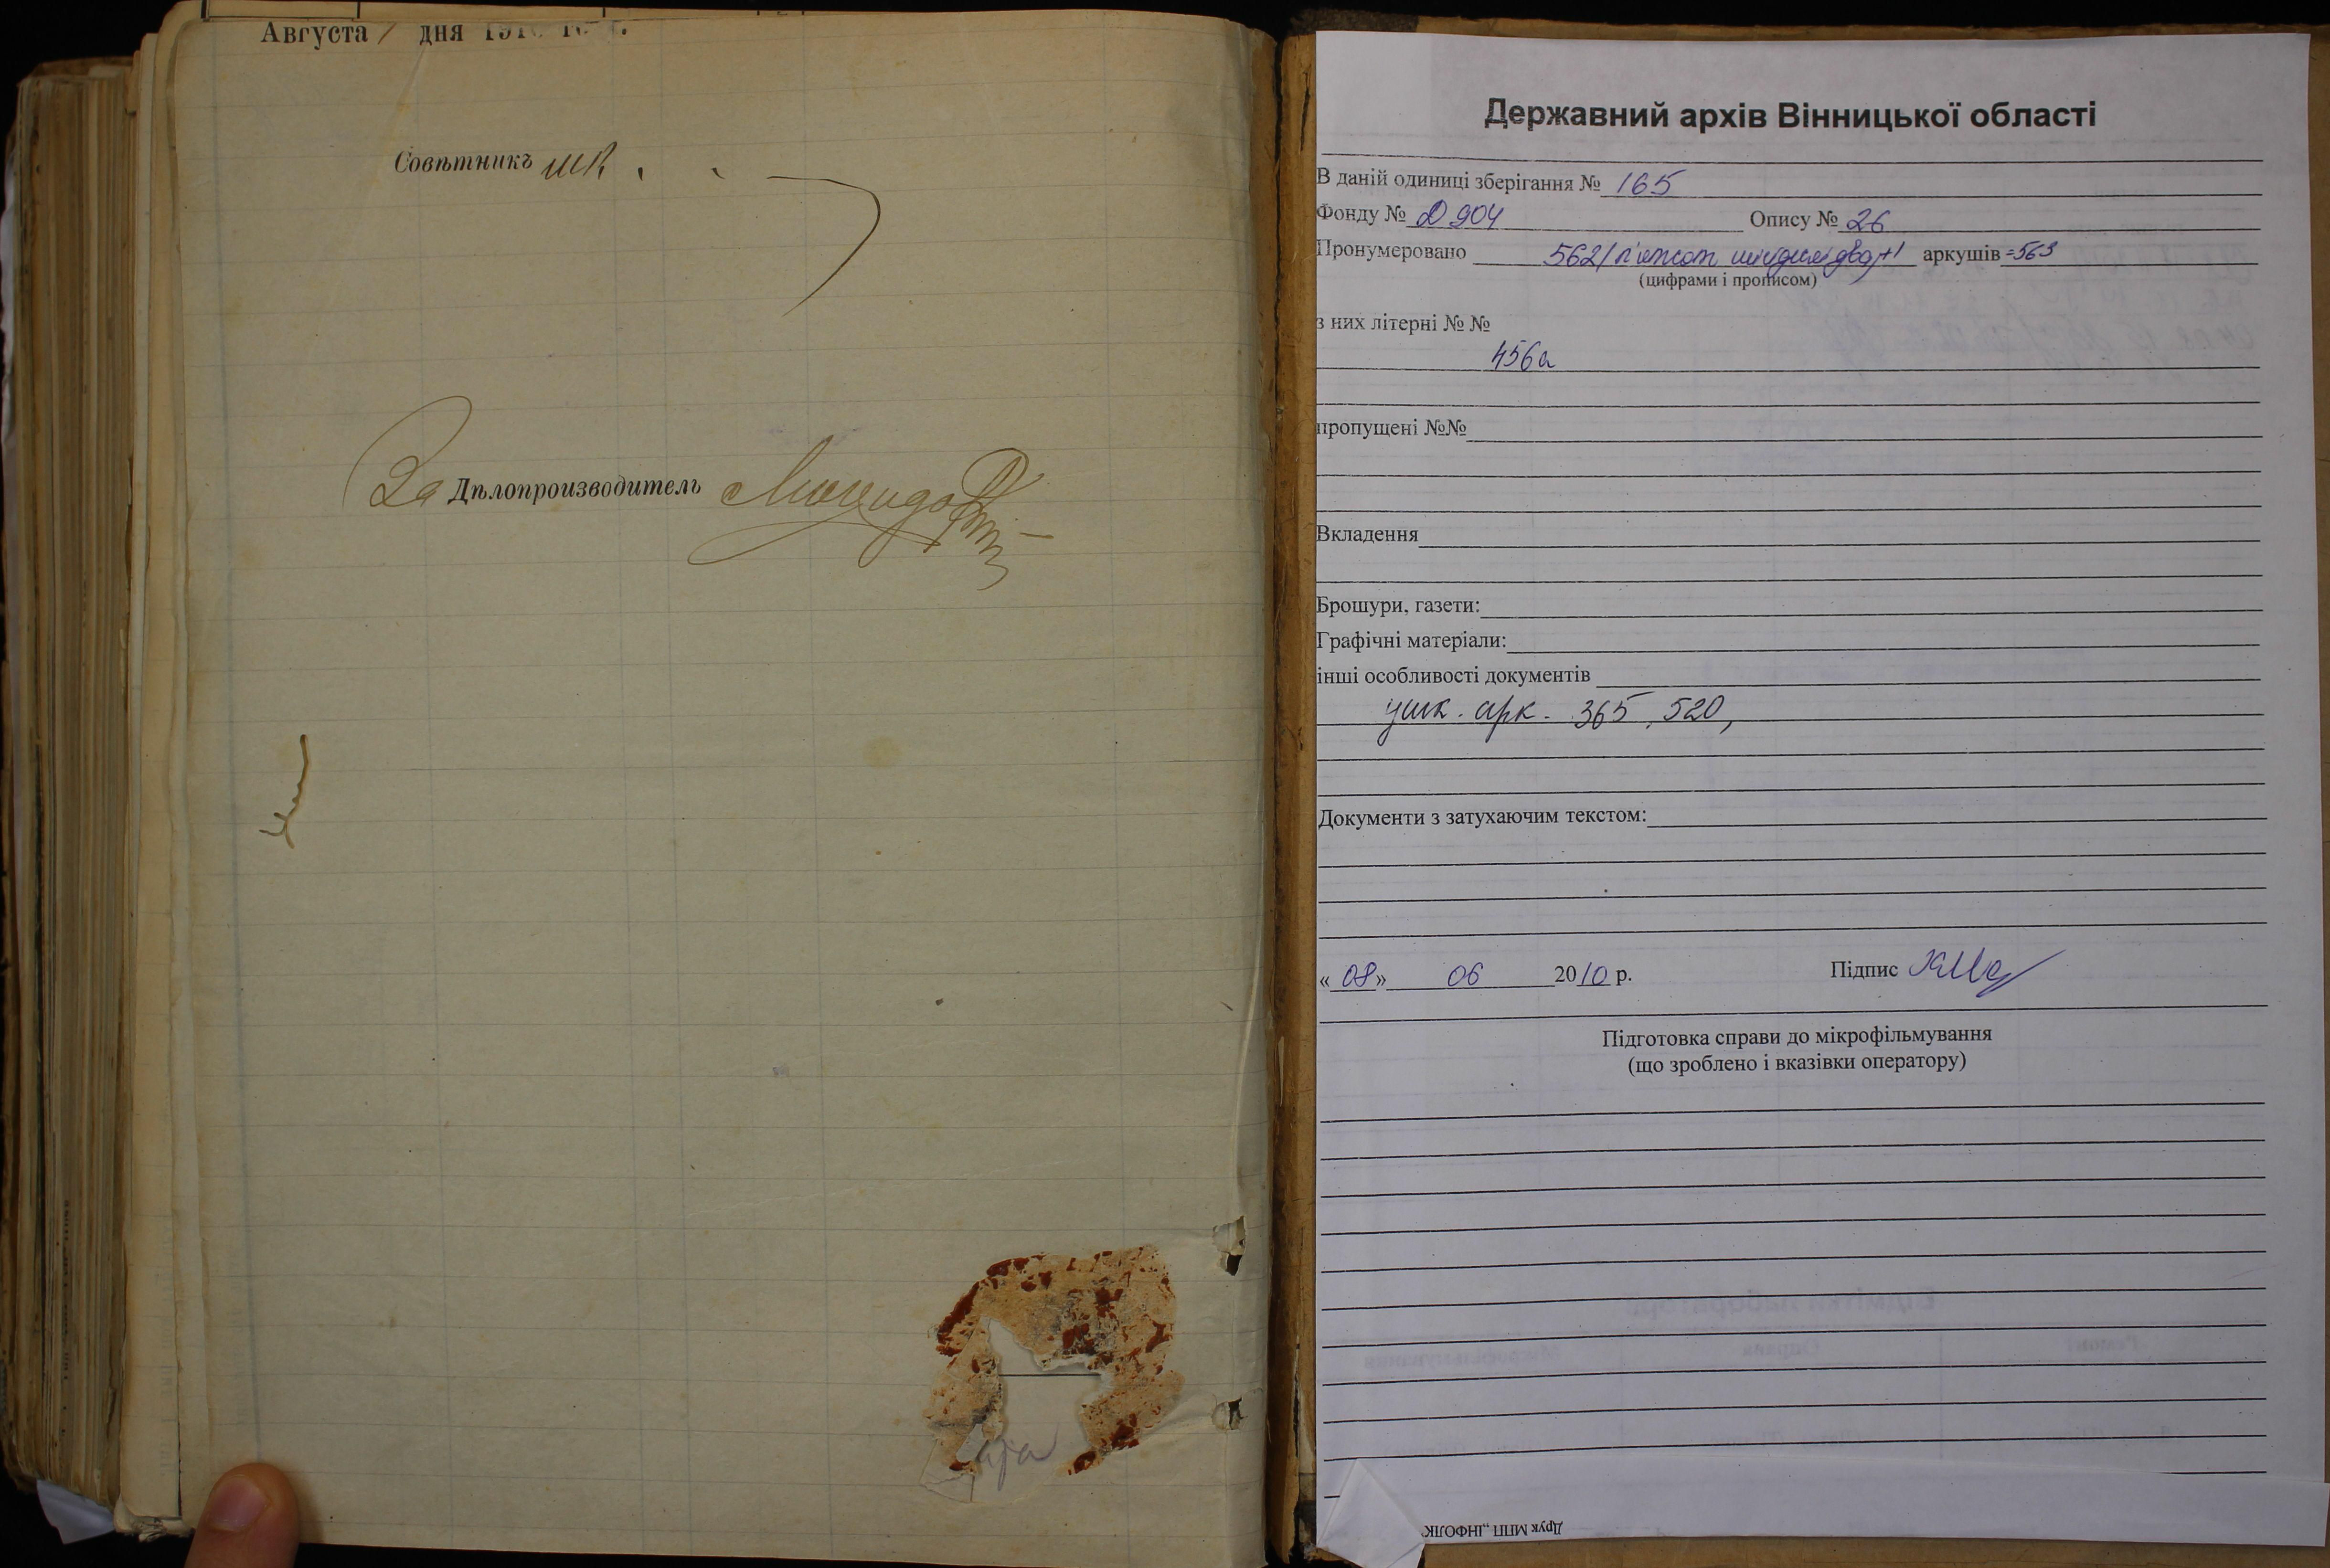 Августа дня
Совѣтникъ
За Дѣлопроизводитель
Державний архів Вінницької області
В даній одиниці зберігання № 165
Фонду № Д 904 Опису № 26
Пронумеровано 562 (п'ятсот шістдесят два)+1 аркушів =563
(цифрами і прописом)
з них літерні № №
456а
пропущені №№
Вкладення
Брошури, газети:
Графічні матеріали:
інші особливості документів
ушк. арк. 365, 520,
Документи з затухаючим текстом:
«08» 06 2010 р. Підпис
Підготовка справи до мікрофільмування
(що зроблено і вказівки оператору)
Друк МПП „ІНФОЛІК